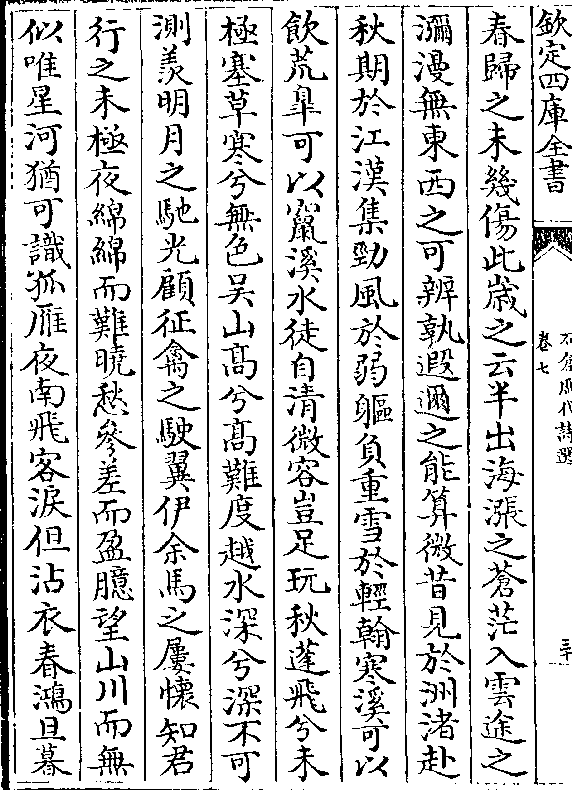 欽定四庫全書
卷七
春歸之未幾傷此嵗之云半出海漲之蒼茫入雲途之
瀰漫無東西之可辨孰遐邇之能算微昔見於洲渚赴
秋期於江漢集勁風於弱軀負重雪於輕翰寒溪可以
飲荒臯可以竄溪水徒自清微容豈足玩秋蓬飛兮未
極塞草寒兮無色吳山髙兮髙難度越水深兮深不可
測羨明月之馳光顧征禽之駛翼伊余馬之屢懷知君
行之未極夜綿綿而難曉愁參差而盈臆望山川而無
似唯星河猶可識孤雁夜南飛客淚但沾衣春鴻旦暮